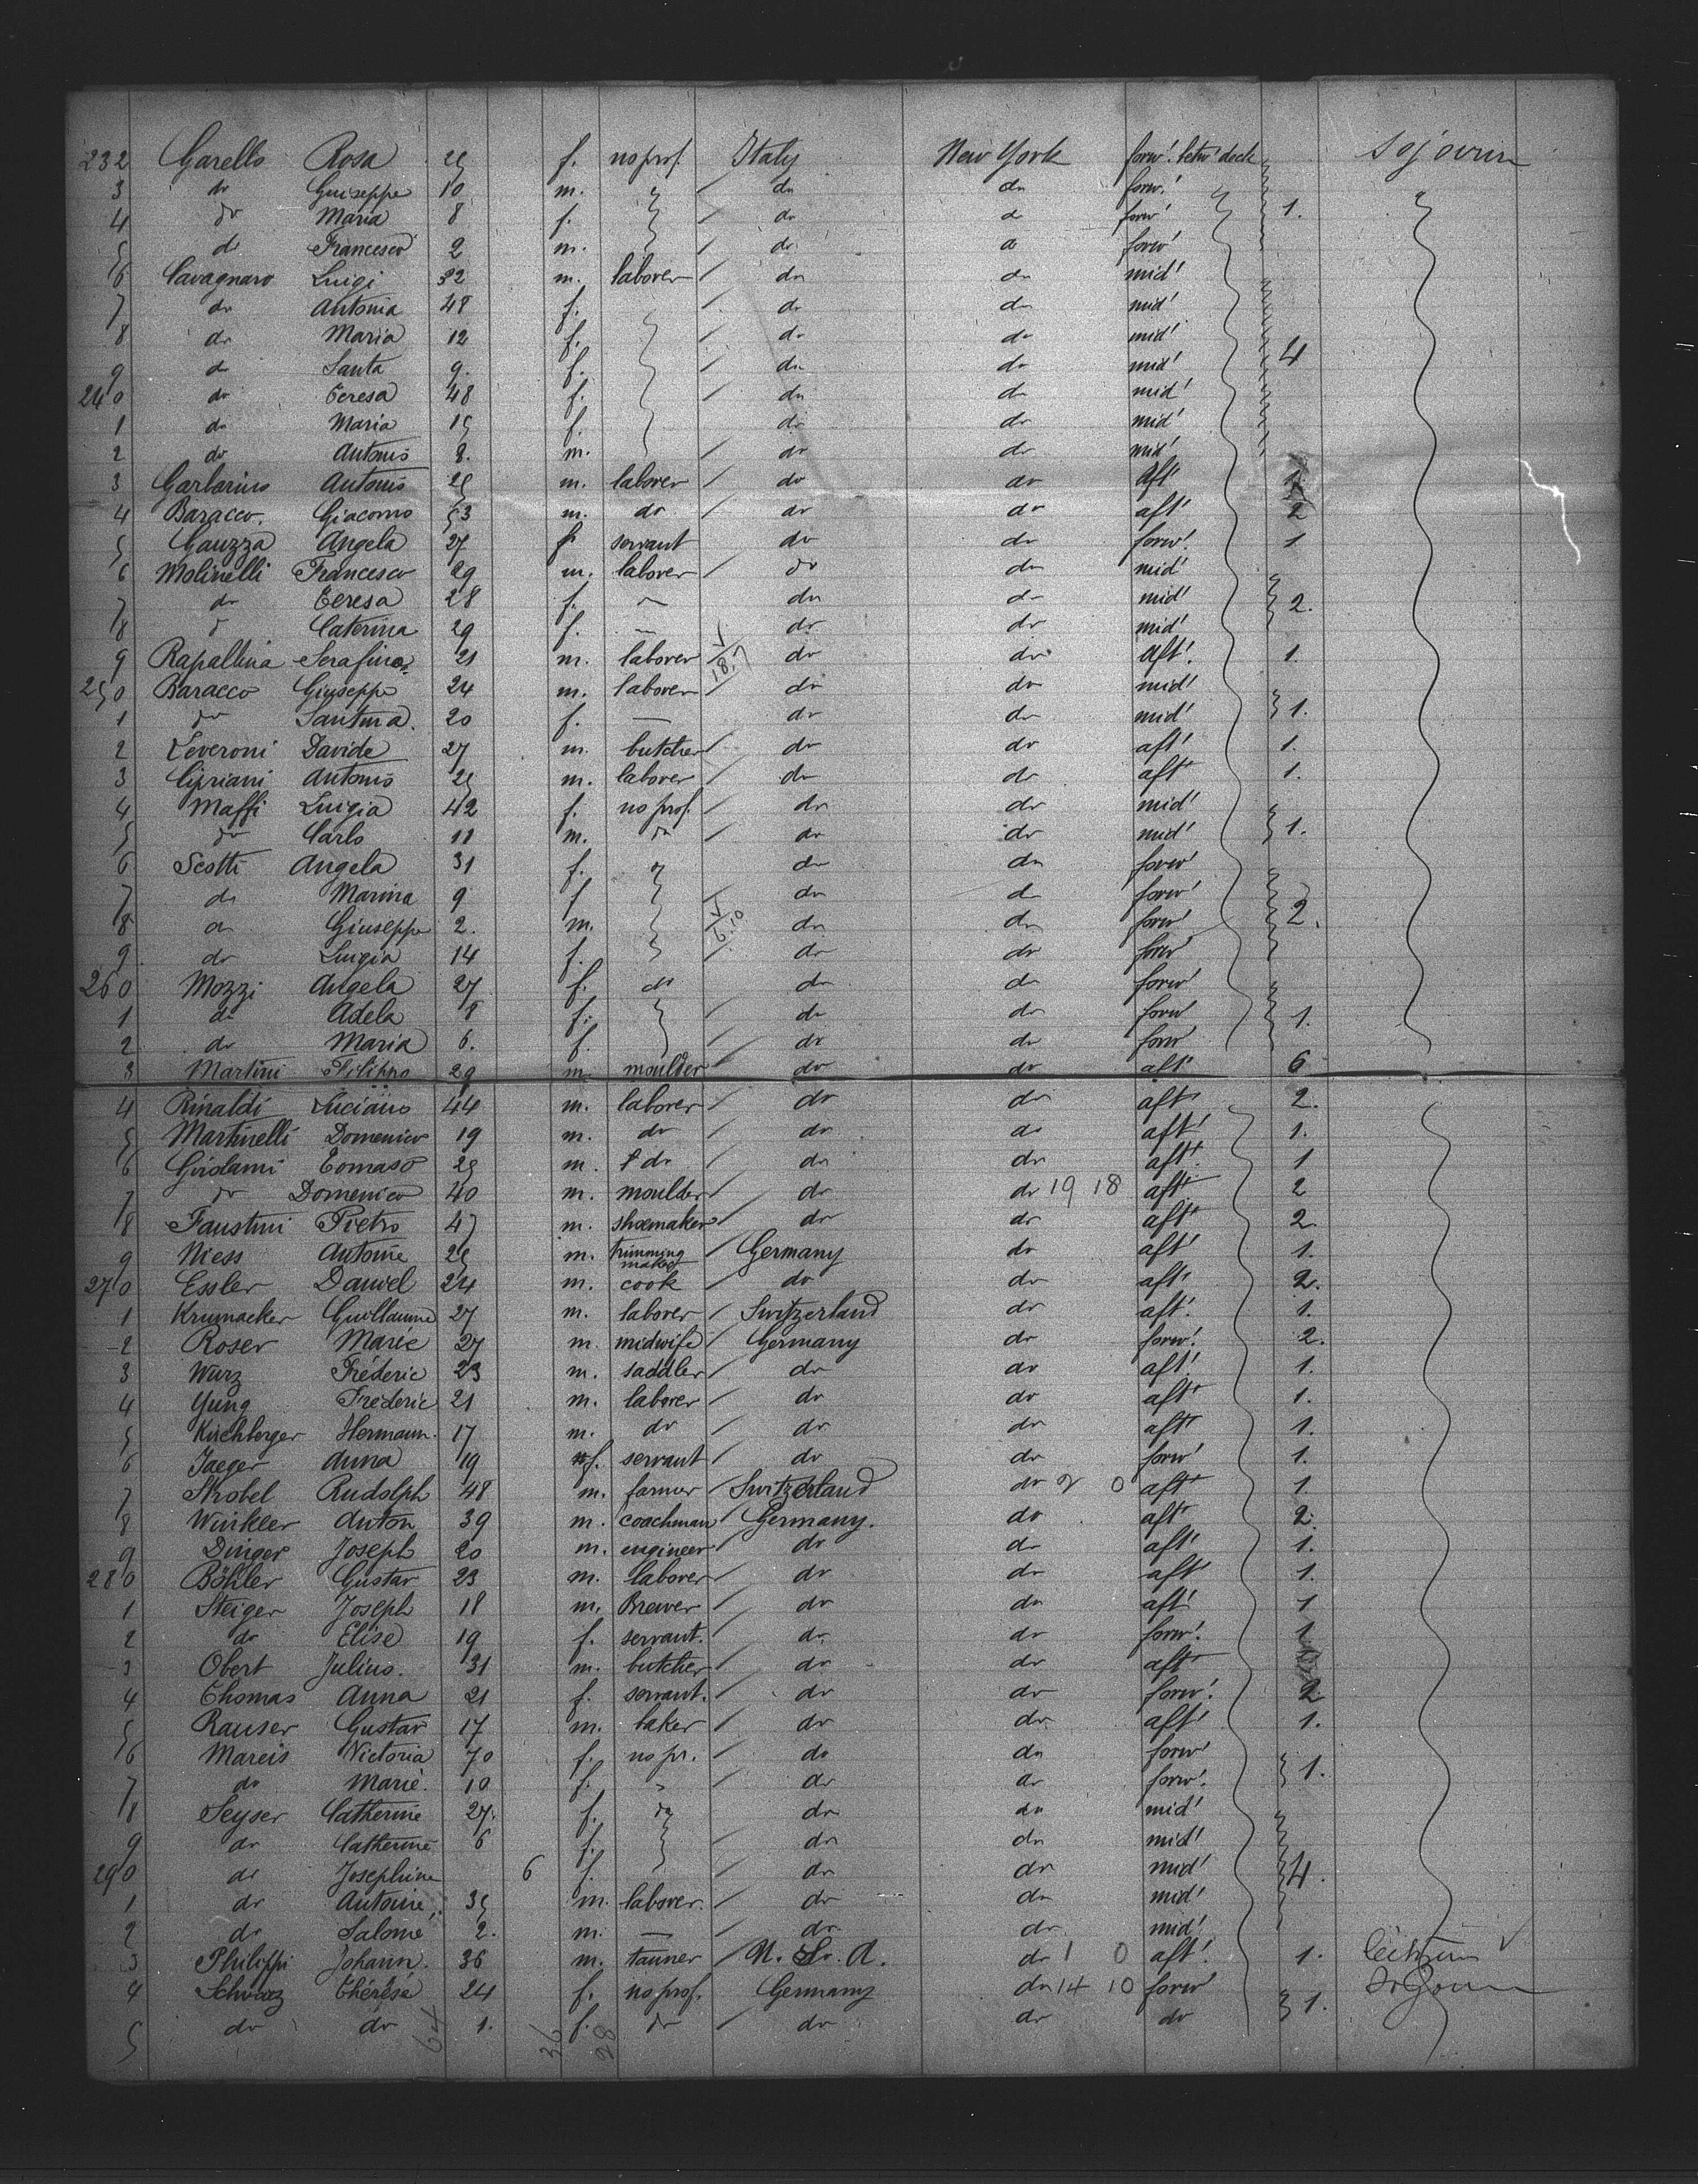 232 Garello Rosa 25 f. no prof. Italy New York forw! betw! deck sojourn
3 do Guiseppe 10 m. do do forw!
4 do Maria 8 f. do do forw! 1.
5 do Francesco 2 m. do do forw!
6 Cavagnaro Luigi 32 m. laborer do do mid!
7 do Antonia 48 f. do do mid!
8 do Maria 12 f. do do mid!
9 do Santa 9. f. do do mid! 4
240 do Teresa 48 f. do do mid!
1 do Maria 15 f. do do mid!
2 do Antonio 8. m. do do mid!
3 Garbarino Antonio 25 m. laborer do do aft! 1
4 Baracco. Giacomo 53 m. do do do aft! 2
5 Gauzza Angela 27 f. servant do do forw! 1
6 Molinelli Francesco 29 m. laborer do do mid!
7 do Teresa 28 f. do do mid! 2.
8 do Caterina 29 f. — do do mid!
9 Rapallina Serafino 21 m. laborer do do aft! 1.
250 Baracco Giuseppe 24 m. laborer do do mid!
1 do Santina. 20 f. — do do mid! 1.
2 Leveroni Davide 27 m. butcher do do aft! 1.
3 Cipriani Antonio 25 m. laborer do do aft! 1.
4 Maffi Luigia 42 f. no prof. do do mid!
5 do Carlo 11 m. do do do mid! 1.
6 Scotti Angela 31 f. do do forw!
7 do Marina 9 f do do forw!
8 do Giuseppe 2. m. do do forw! 2.
9 do Luigia 14 f. do do forw!
260 Mozzi Angela 27 f. do do do forw!
1 do Adela 8 f. do do forw! 1.
2 do Maria 6. f. do do forw!
3 Martini Filippo 29 m moulder do do aft! 6
4 Rinaldi Luciano 44 m. laborer do do aft! 2.
5 Martinelli Domenico 19 m. do do do aft! 1.
6 Girolami Tomaso 25 m. do do do aft! 1
7 do Domenico 40 m. moulder do do 19 18 aft! 2
8 Faustini Pietro 47 m. shoemaker do do aft! 2.
9 Niess Antoine 25 m. trimming maker Germany do aft! 1.
270 Essler Daniel 24 m. cook do do aft! 2.
1 Krumacker Guillaume 27 m. laborer Switzerland do aft! 1.
2 Roser Marie 27 m. midwife Germany do forw! 2.
3 Wurz Fréderic 23 m. saddler do do aft! 1.
4 Yung Fréderic 21 m. laborer do do aft! 1.
5 Kirchberger Hermann. 17 m. do do do aft! 1.
6 Jaeger Anna 19 f. servant do do forw! 1.
7 Strobel Rudolph 48 m. farmer Switzerland do 2 0 aft! 1.
8 Winkler Anton 39 m. coachman Germany. do aft! 2.
9 Dinger Joseph 20 m. engineer do do aft! 1.
280 Böhler Gustav 23 m. laborer do do aft! 1.
1 Steiger Joseph 18 m. Brewer do do aft! 1
2 do Elise 19 f. servant. do do forw! 1.
3 Obert Julius. 31 m. butcher do do aft!
4 Thomas Anna 21 f. servant. do do forw! 2
5 Rauser Gustav 17 m. baker do do aft! 1.
6 Mareis Victoria 70 f. no pr. do do forw!
7 do Marie. 10 f. do do forw! 1.
8 Seyser Catherine 27. f. do do do mid!
9 do Catherine 6 f. do do mid!
290 do Josephine 6 f. do do mid! 4.
1 do Antoine 35 m. laborer. do do mid!
2 do Salomé 2. m. — do do mid!
3 Philippi Johann. 36 m. tanner U. S. A. do 1 0 aft! 1.
4 Schwarz Thérèse 24 f. no prof. Germany do 14 10 forw! sojourn
5 do do 1. f. do do do do 1.
64 36 28